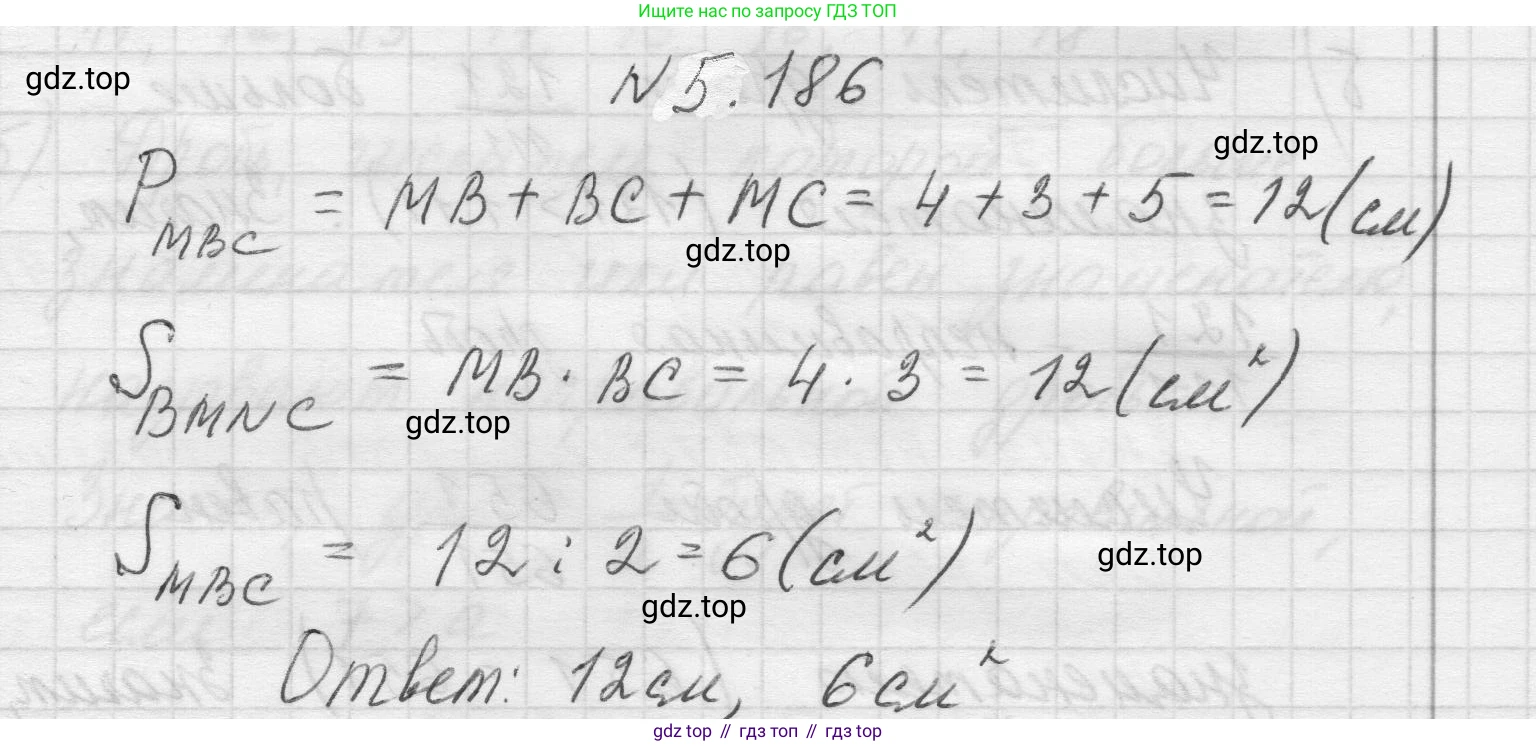 Ищите нас по запросу ГДЗ ТОП
gdz.top
N 5.186
gdz.top
P MBC = MB + BC + MC = 4 + 3 + 5 = 12 (см)
gdz.top
S BMNC = MB · BC = 4 · 3 = 12 (см²)
gdz.top
S MBC = 12 : 2 = 6 (см²)
gdz.top
gdz.top
Ответ: 12 см, 6 см²
gdz.top // гдз топ // гдз top